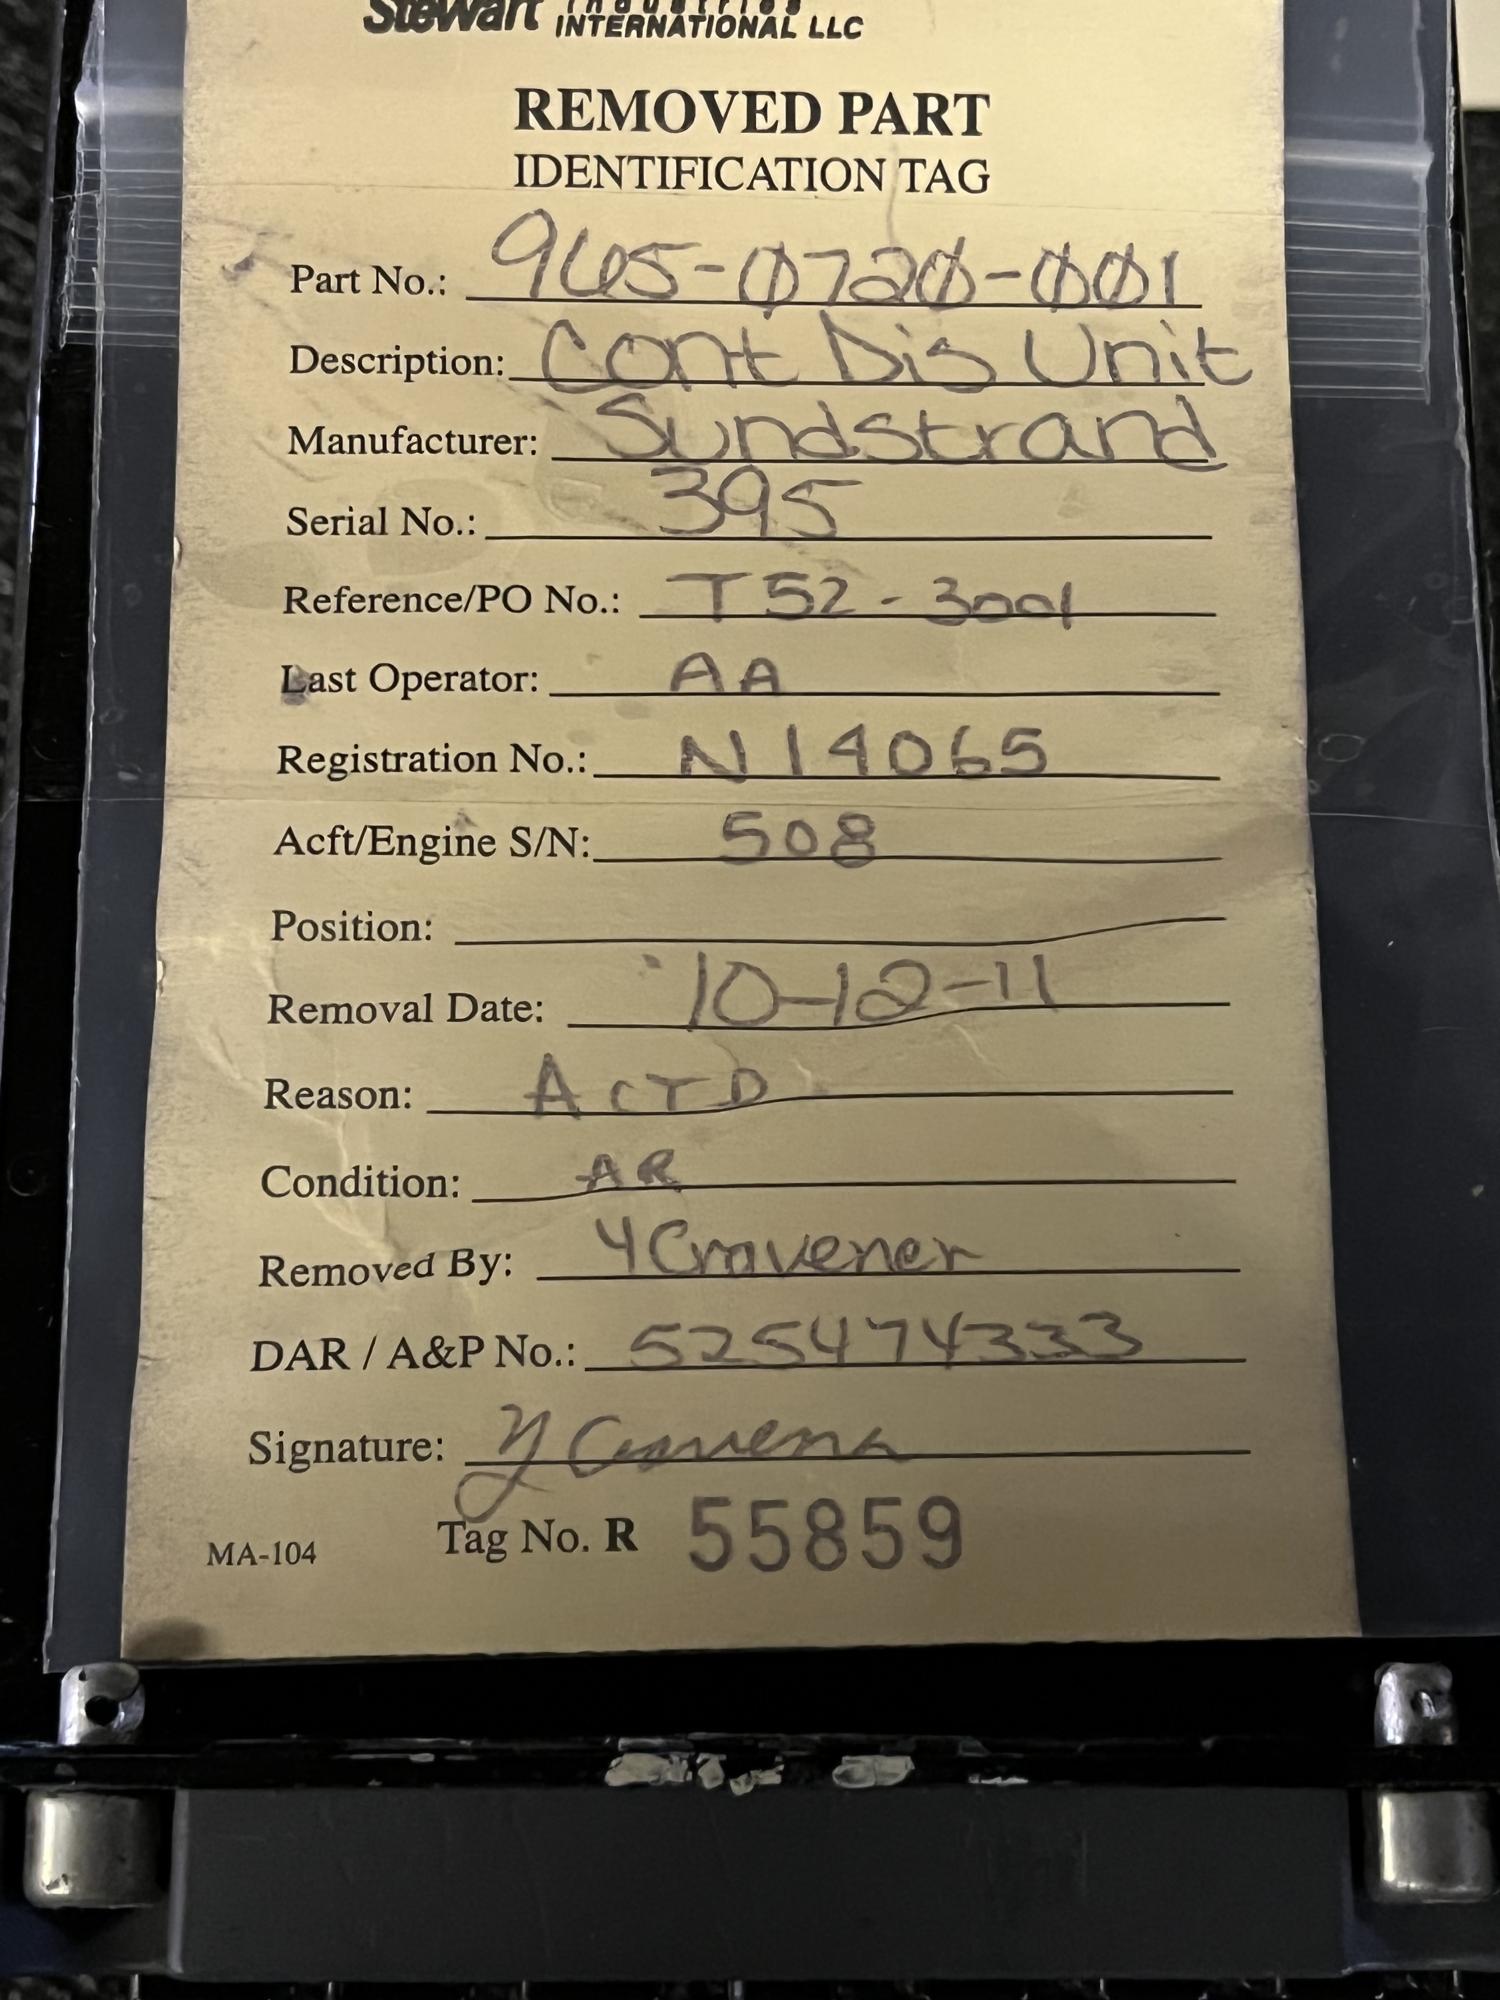 Stewart Industries
INTERNATIONAL LLC
REMOVED PART
IDENTIFICATION TAG
Part No.: 965-0720-001
Description: Cont Dis Unit
Manufacturer: Sundstrand
Serial No.: 395
Reference/PO No.: T52-3001
Last Operator: AA
Registration No.: N14065
Acft/Engine S/N: 508
Position:
Removal Date: 10-12-11
Reason: ACTD
Condition: AR
Removed By: Y Cravener
DAR / A&P No.: 525474333
Signature: Y Cravener
MA-104 Tag No. R 55859